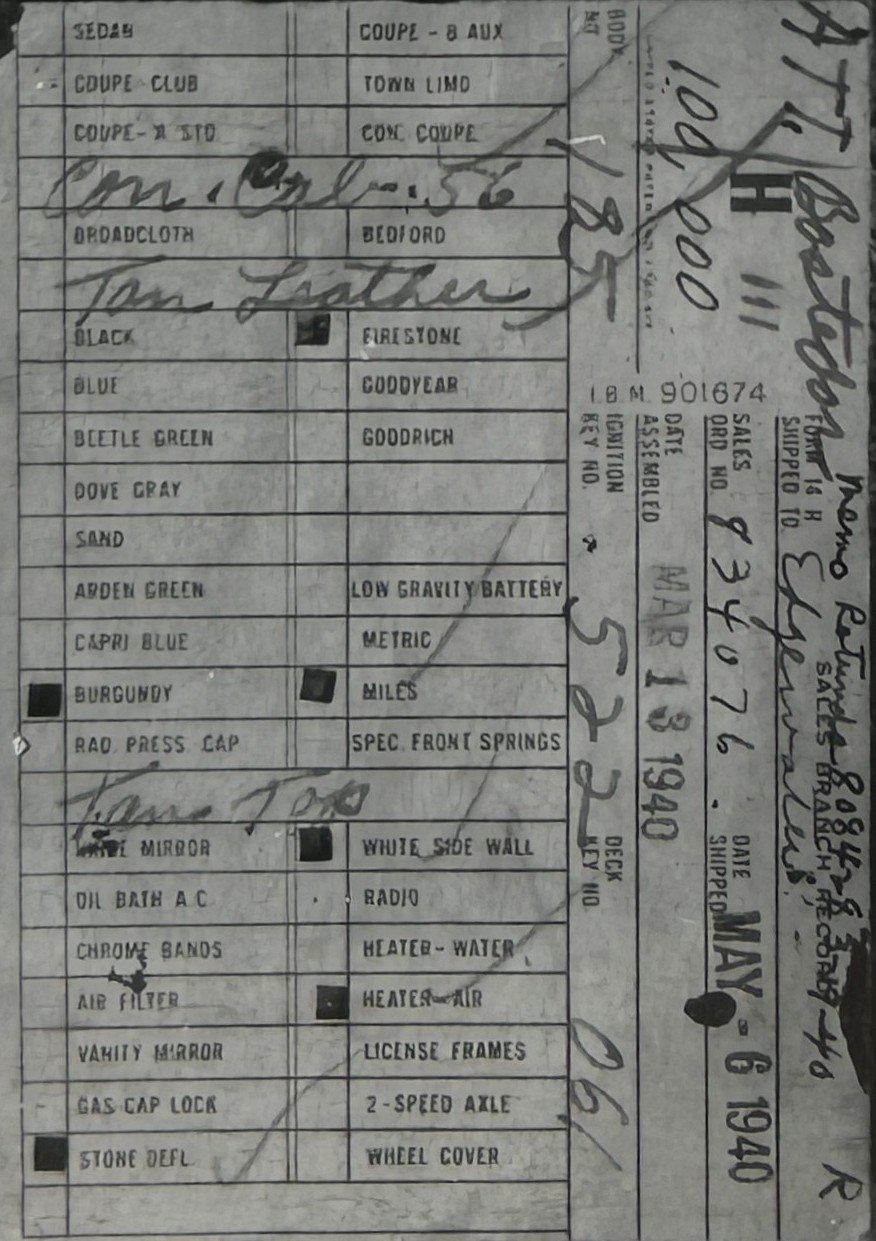 SEDAN
COUPE - B AUX
COUPE CLUB
TOWN LIMO
COUPE- A STD
CON. COUPE
Con. Cab. 56
BROADCLOTH
BEDFORD
Tan Leather
BLACK
FIRESTONE
BLUE
GOODYEAR
BEETLE GREEN
GOODRICH
DOVE GRAY
SAND
ARDEN GREEN
LOW GRAVITY BATTERY
CAPRI BLUE
METRIC
BURGUNDY
MILES
RAD. PRESS CAP
SPEC. FRONT SPRINGS
Tan Top
MIRROR
WHITE SIDE WALL
OIL BATH A C
RADIO
CHROME BANDS
HEATER - WATER
AIR FILTER
HEATER - AIR
VANITY MIRROR
LICENSE FRAMES
GAS CAP LOCK
2 - SPEED AXLE
STONE DEFL.
WHEEL COVER
ATT. Bostedor
Memo Rotunda
R
FORM 14 H
SALES BRANCH RECORD
SHIPPED TO Edgewater
H 111
SALES
ORD NO. 834076
DATE
SHIPPED MAY - 6 1940
100,000
DATE
ASSEMBLED MAR 13 1940
I B M 901674
BODY
185
IGNITION
KEY NO. 522
DECK
KEY NO. 061